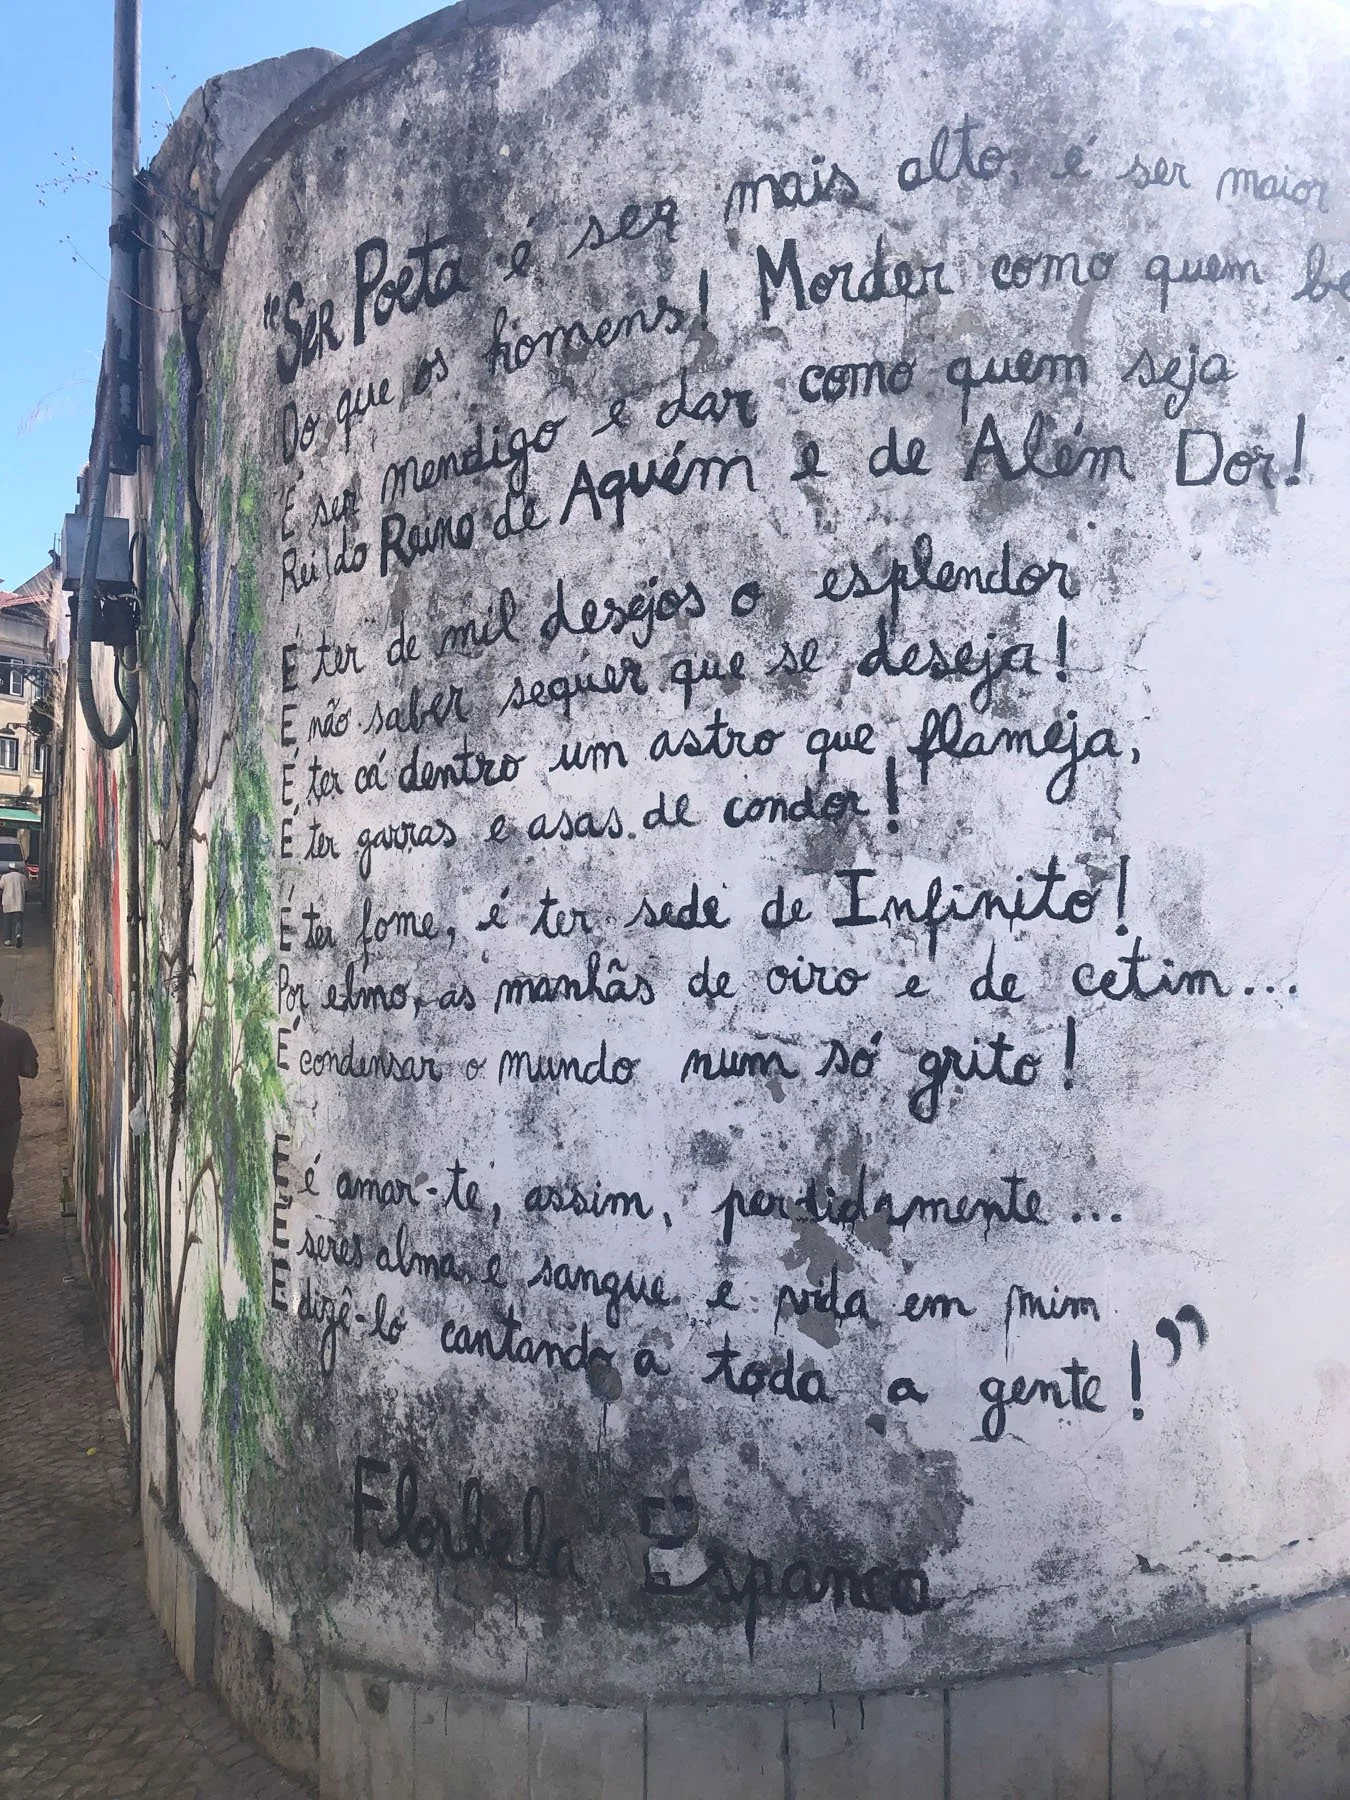 "Ser Poeta é ser mais alto, é ser maior
Do que os homens! Morder como quem
É ser mendigo e dar como quem seja
Rei do Reino de Aquém e de Além Dor!
É ter de mil desejos o esplendor
E não saber sequer que se deseja!
É ter cá dentro um astro que flameja,
É ter garras e asas de condor!
É ter fome, é ter sede de Infinito!
Por elmo, as manhãs de oiro e de cetim...
É condensar o mundo num só grito!
E é amar-te, assim, perdidamente...
É seres alma e sangue e vida em mim
E dizê-lo cantando a toda a gente!"
Florbela Espanca